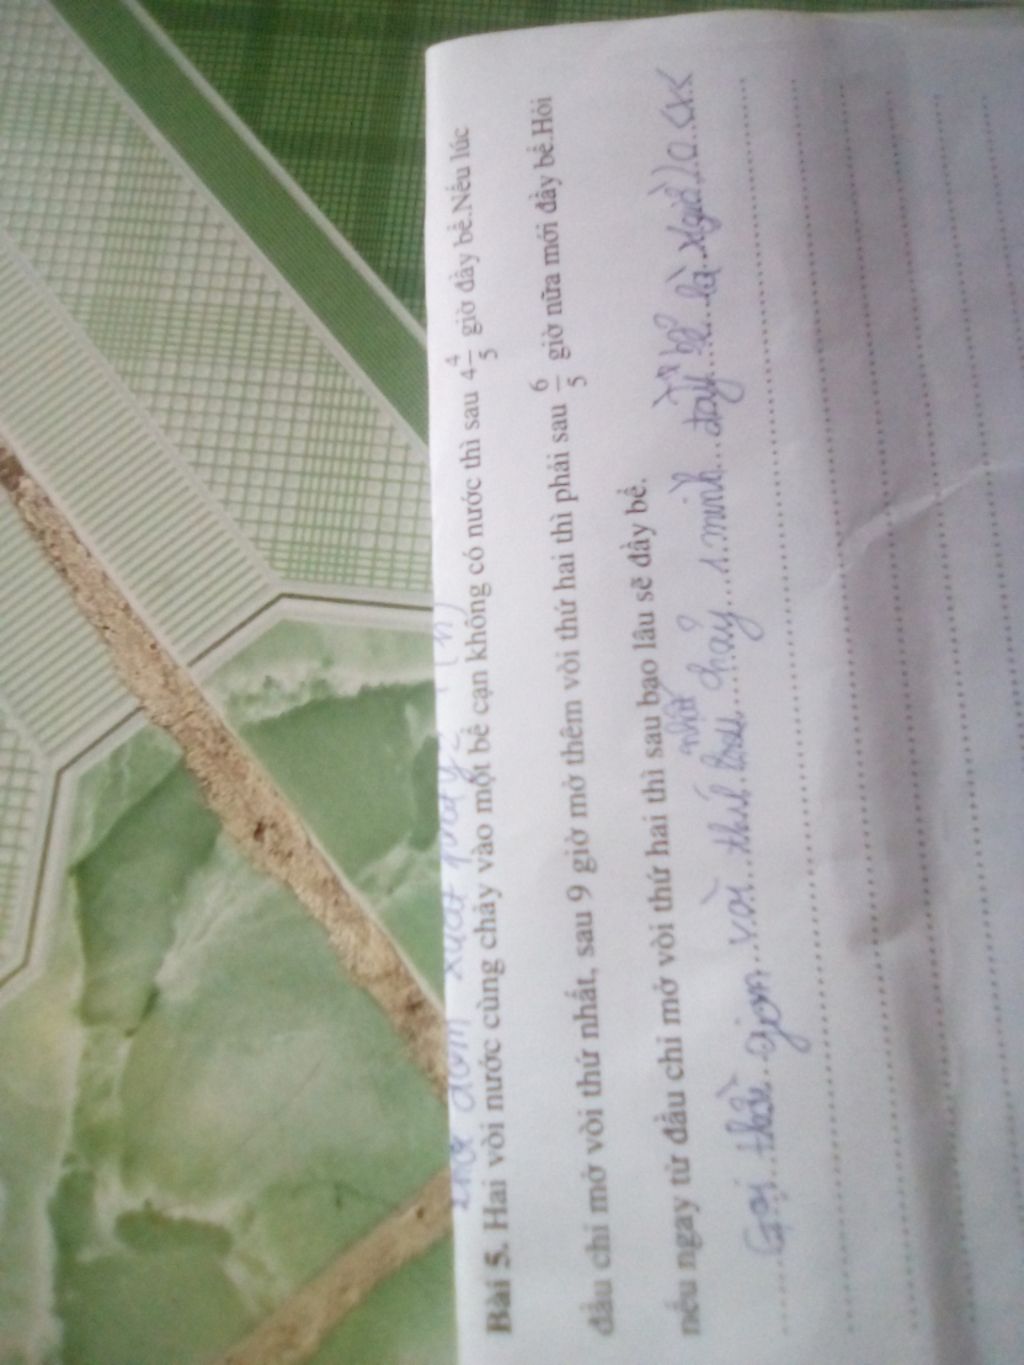 Bài 5. Hai vòi nước cùng chảy vào một bể cạn không có nước thì sau 4 4/5 giờ đầy bể.Nếu lúc
đầu chỉ mở vòi thứ nhất, sau 9 giờ mở thêm vòi thứ hai thì phải sau 6/5 giờ nữa mới đầy bể.Hỏi
nếu ngay từ đầu chỉ mở vòi thứ hai thì sau bao lâu sẽ đầy bể.
Gọi thời gian vòi thứ nhất chảy 1 mình đầy bể là x(giờ)